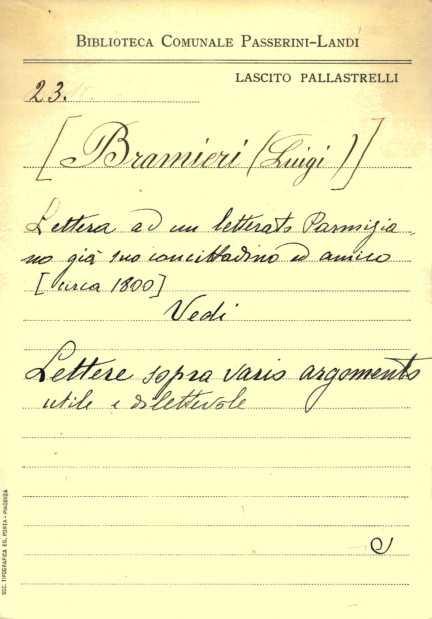 BIBLIOTECA COMUNALE PASSERINI-LANDI
LASCITO PALLASTRELLI
23.
[Bramieri (Luigi)]
Lettera ad un letterato Parmigia-
no già suo concittadino ed amico
[circa 1800]
Vedi
Lettere sopra vario argomento
utile e dilettevole
SOC. TIPOGRAFICA ED. PORTA - PIACENZA